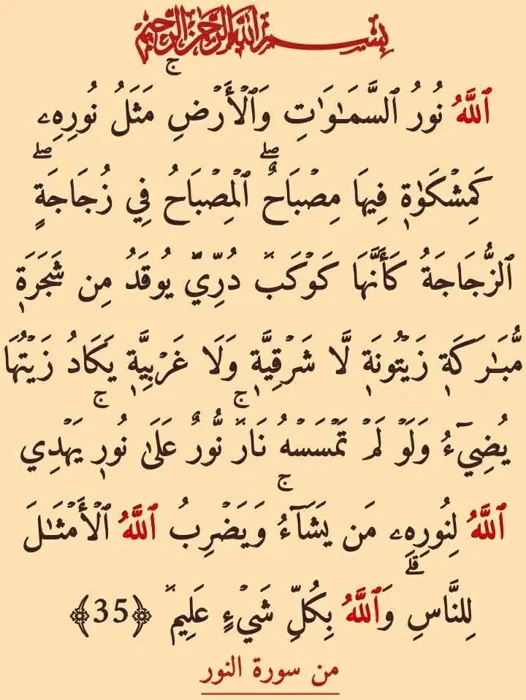 بِسْمِ اللَّهِ الرَّحْمَٰنِ الرَّحِيمِ
ٱللَّهُ نُورُ ٱلسَّمَـٰوَٰتِ وَٱلْأَرْضِ ۚ مَثَلُ نُورِهِۦ
كَمِشْكَوٰةٍ فِيهَا مِصْبَاحٌ ۖ ٱلْمِصْبَاحُ فِي زُجَاجَةٍ ۖ
ٱلزُّجَاجَةُ كَأَنَّهَا كَوْكَبٌ دُرِّيٌّ يُوقَدُ مِن شَجَرَةٍ
مُّبَـٰرَكَةٍ زَيْتُونَةٍ لَّا شَرْقِيَّةٍ وَلَا غَرْبِيَّةٍ يَكَادُ زَيْتُهَا
يُضِيٓءُ وَلَوْ لَمْ تَمْسَسْهُ نَارٌ ۚ نُّورٌ عَلَىٰ نُورٍ ۗ يَهْدِي
ٱللَّهُ لِنُورِهِۦ مَن يَشَآءُ ۚ وَيَضْرِبُ ٱللَّهُ ٱلْأَمْثَـٰلَ
لِلنَّاسِ ۗ وَٱللَّهُ بِكُلِّ شَيْءٍ عَلِيمٌ ﴿35﴾
من سورة النور